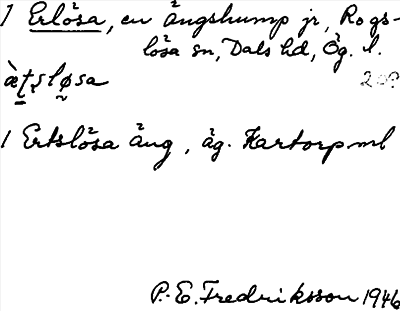 1 Erlösa, en ängshump jr, Rogs-
lösa sn, Dals hd, Ög. l.
20?
1 Ertslösa äng, äg. Hartorp ml
P. E. Fredriksson 1946